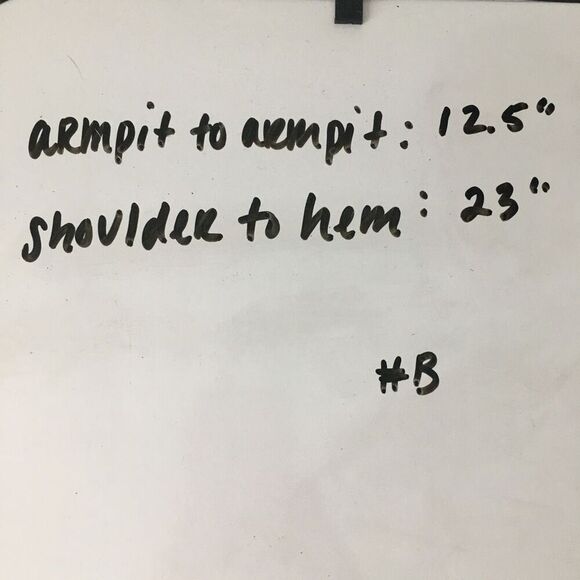 armpit to armpit: 12.5"
shoulder to hem: 23"
#B